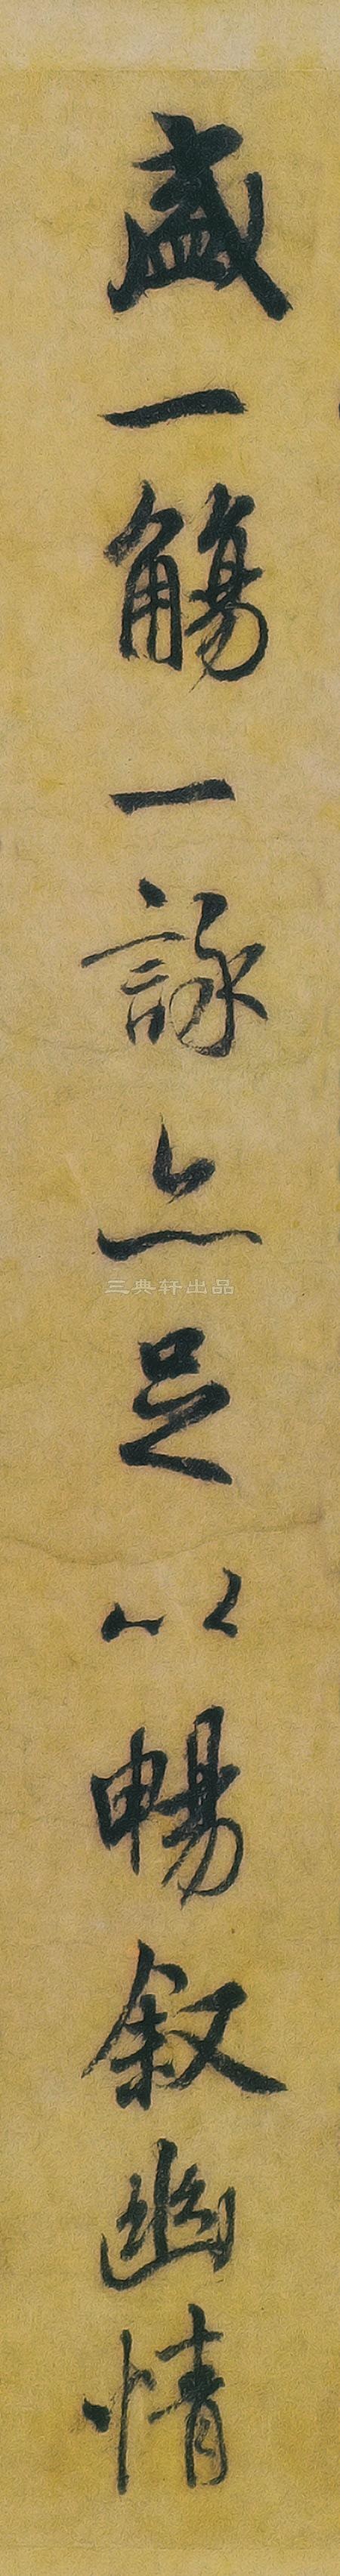 盛一觴一詠亦足以暢叙幽情
三典轩出品